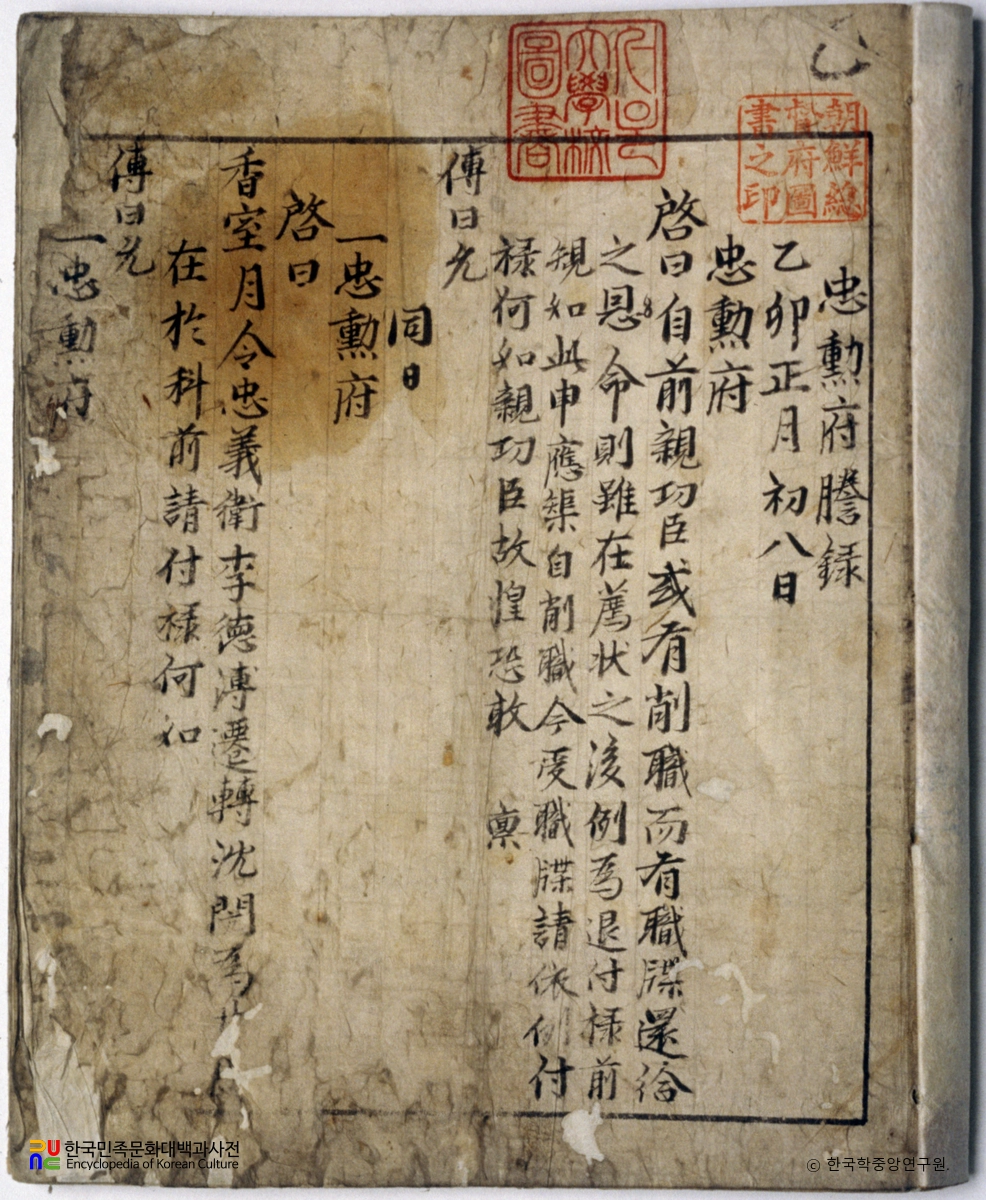 忠勳府謄録
乙卯正月初八日
忠勳府
啓曰自前親功臣或有削職而有職牒還給
之恩命則雖在薦狀之後例爲退付祿前
規如此申應榘自削職今受職牒請依例付
祿何如親功臣故惶恐敢 稟
傳曰允
同日
一忠勳府
啓曰
香室月令忠義衛李德溥遷轉沈閈爲
在於科前請付祿何如
傳曰允
一忠勳府
朝鮮總
督府圖
書之印
大學校
圖書
한국민족문화대백과사전
Encyclopedia of Korean Culture
© 한국학중앙연구원.